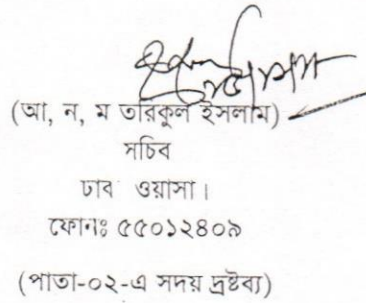 (আ, ন, ম তারিকুল ইসলাম)
সচিব
ঢাব ওয়াসা।
ফোনঃ ৫৫০১২৪০৯
(পাতা-০২-এ সদয় দ্রষ্টব্য)